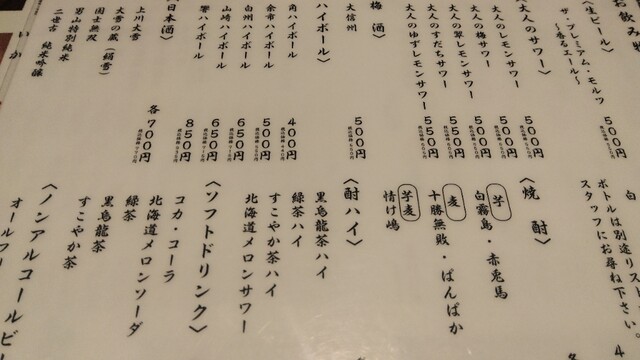 お飲み物
〈生ビール〉
ザ・プレミアム・モルツ
～香るエール～
500円
〈大人のサワー〉
大人のレモンサワー
500円
大人の梅サワー
500円
大人の翠レモンサワー
500円
大人のすだちサワー
550円
大人のゆずレモンサワー
550円
梅酒
大信州
500円
ハイボール〉
角ハイボール
400円
余市ハイボール
500円
白州ハイボール
650円
山崎ハイボール
650円
響ハイボール
850円
日本酒〉
各700円
上川大雪
大雪の蔵(絹雪)
国士無双
男山特別純米
二世古 純米吟醸
ボトルは別途リスト
スタッフにお尋ね下さい。
〈焼酎〉
芋
白霧島・赤兎馬
麦
十勝無敗・ばんばか
芋麦
情け嶋
〈酎ハイ〉
黒烏龍茶ハイ
緑茶ハイ
すこやか茶ハイ
北海道メロンサワー
〈ソフトドリンク〉
コカ・コーラ
北海道メロンソーダ
緑茶
黒烏龍茶
すこやか茶
〈ノンアルコールビ
オールフ